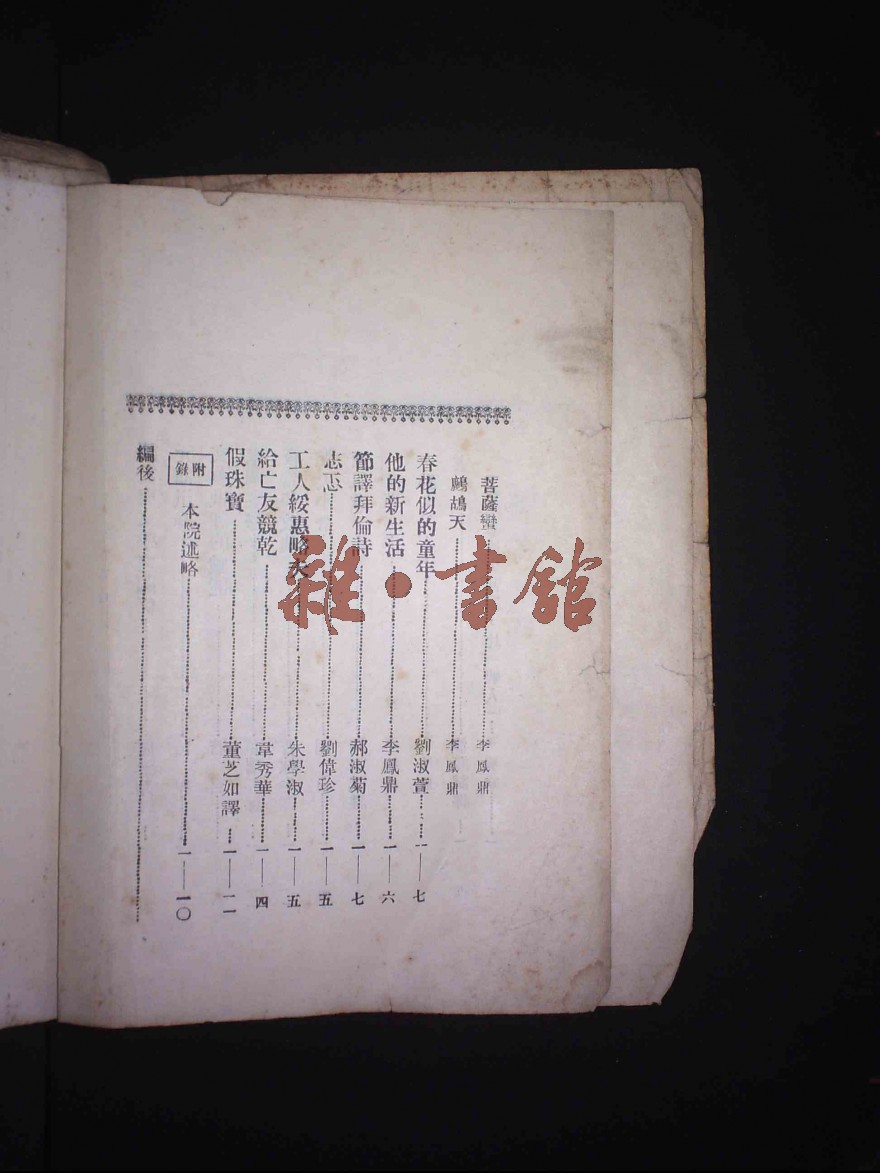 菩薩蠻……李鳳鼎
鷓鴣天……李鳳鼎
春花似的童年……劉淑萱……一——七
他的新生活……李鳳鼎……一——六
節譯拜倫詩……郝淑菊……一——七
志忑……劉偉珍……一——五
工人綏惠略夫……朱學淑……一——五
給亡友競乾……韋秀華……一——四
假珠寶……董芝如譯……一——二一
附錄 本院述略……一——一〇
編後……
雜·書館